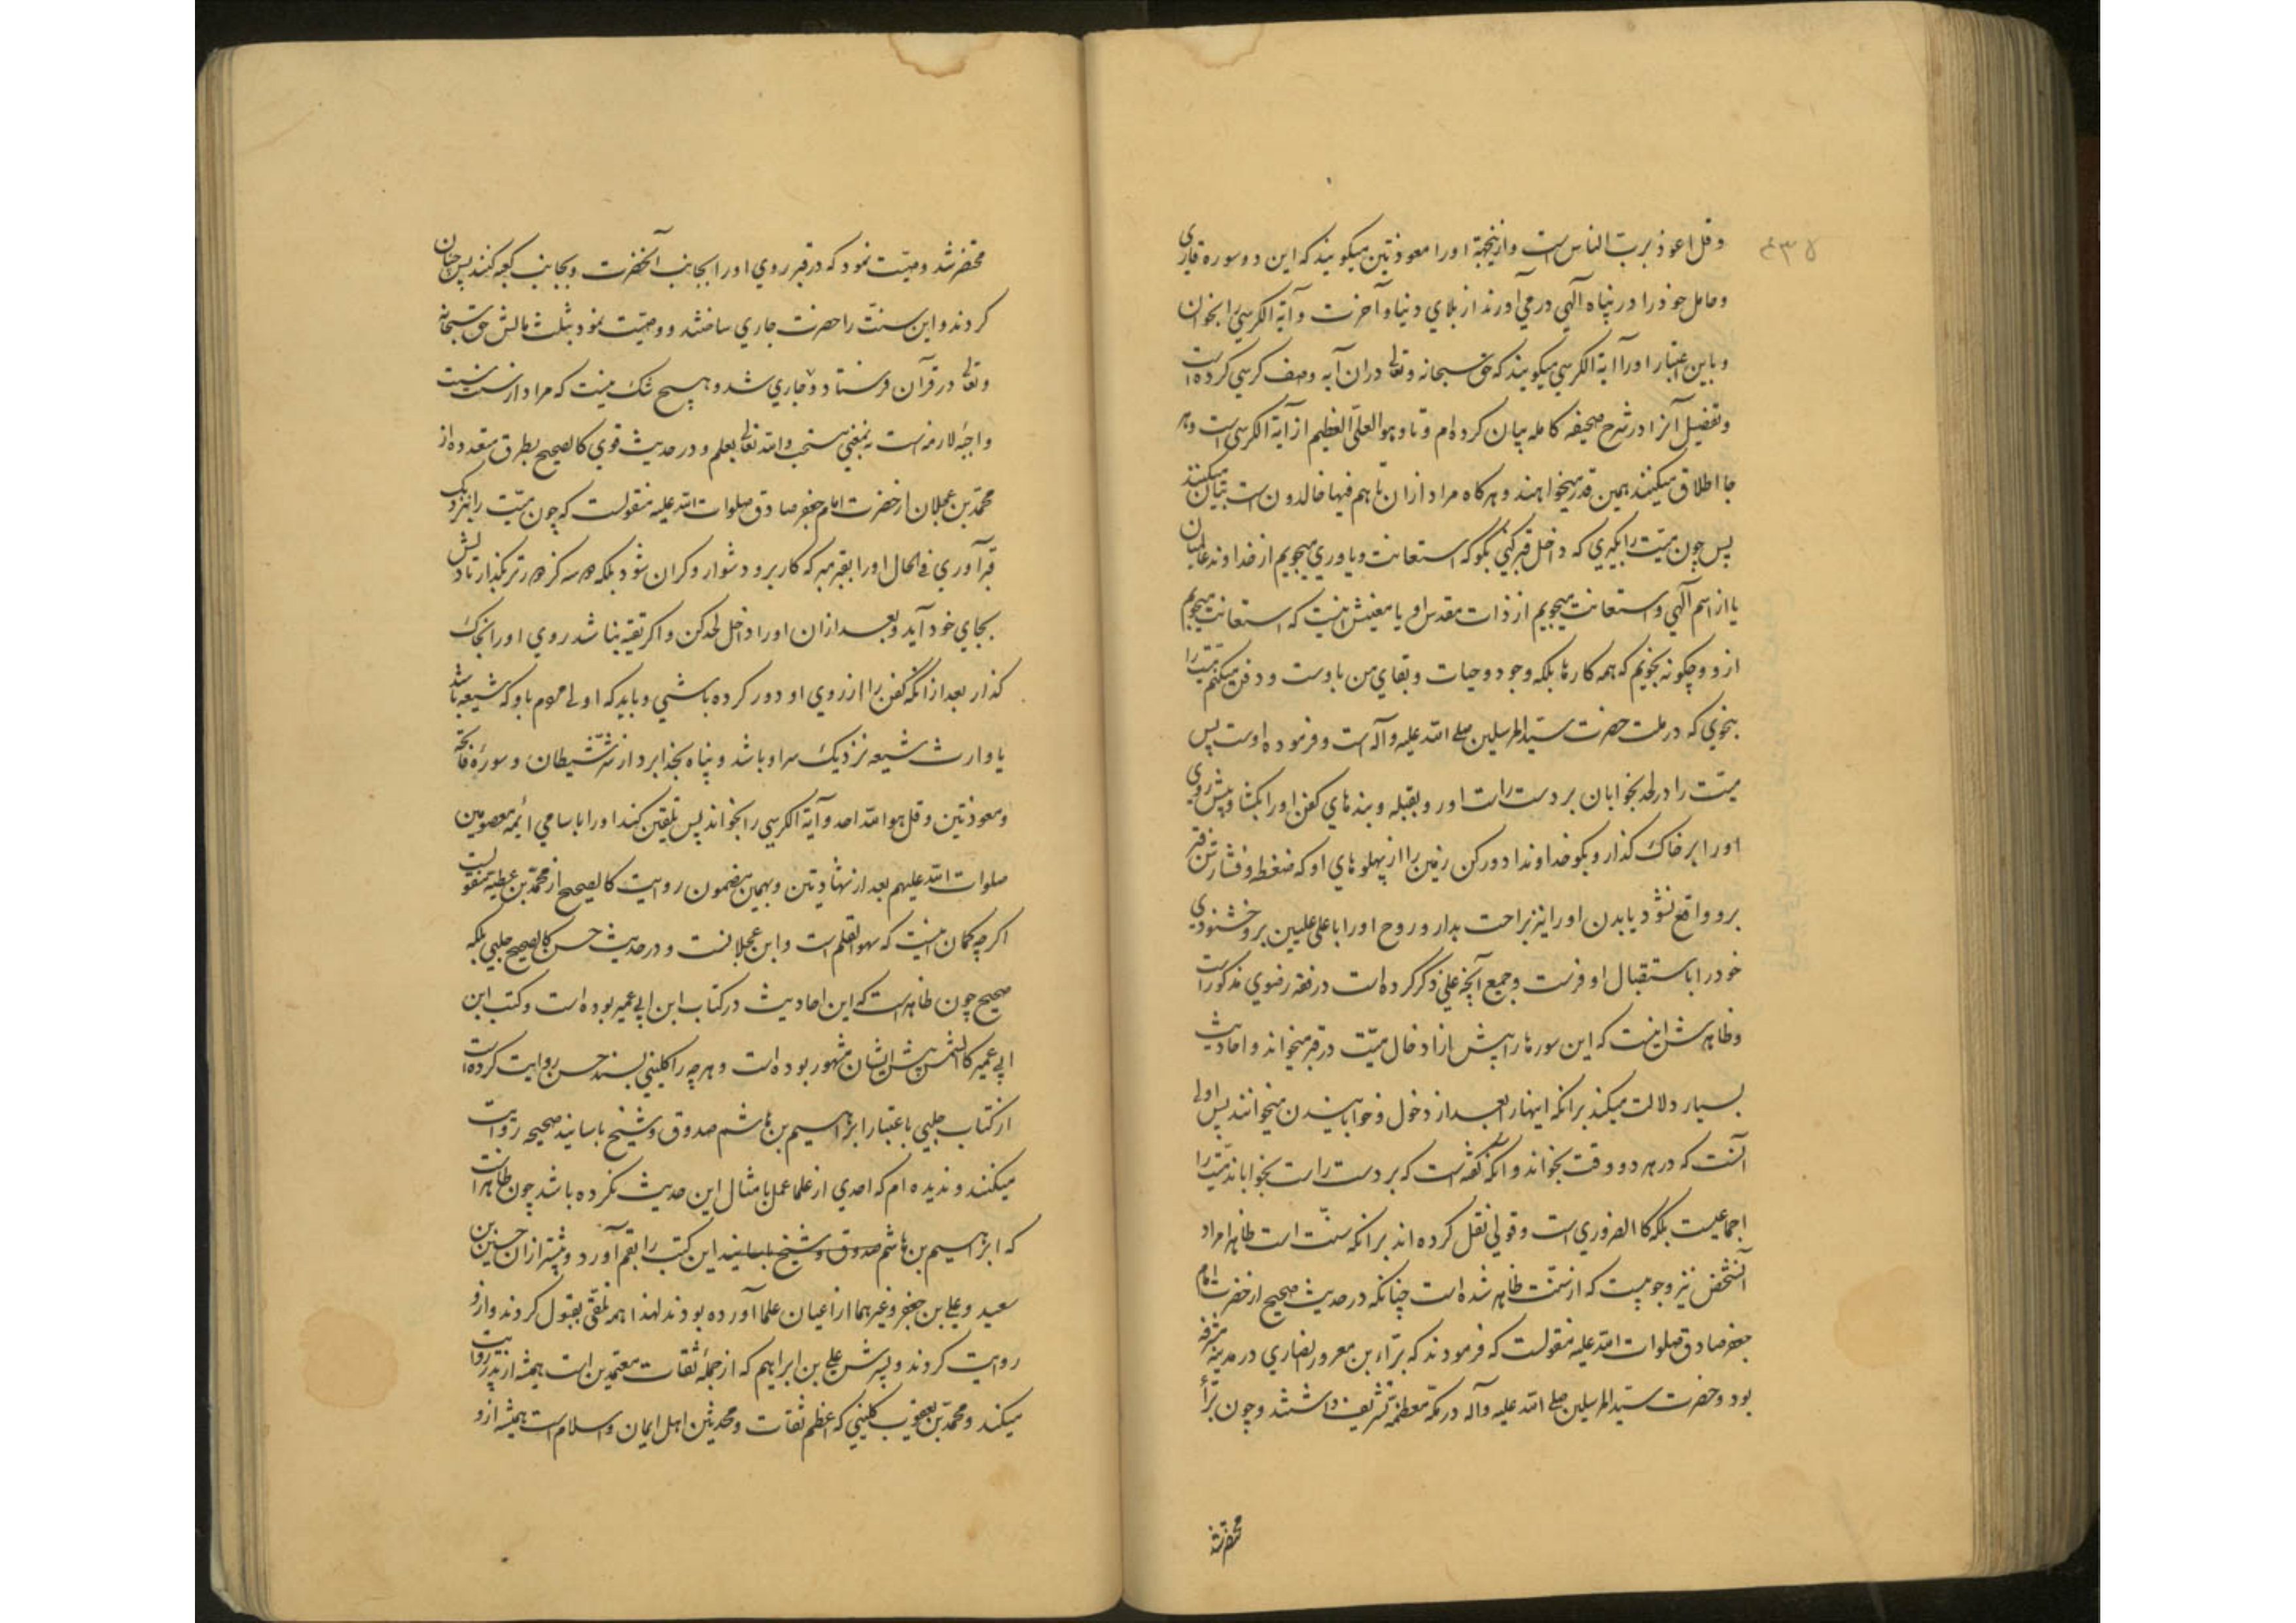 وقل اعوذ برب الناس است وازینجهة اورا معوذتین میکویند که این دو سوره قاری
وحامل خود را در پناه الهی درمی اورند از بلای دنیا وآخرت وآیة الکرسی را بخوان
وباین اعتبار اورا آیة الکرسی میکویند که حق سبحانه وتعالی دران آیه وصف کرسی کرده است
وتفصیل آنرا در شرح صحیفه کامله بیان کرده ام وتا وهو العلیّ العظیم از آیة الکرسی است وهر
جا اطلاق میکنند همین قدر میخواهند وهرکاه مراد ازان تا هم فیها خالدون است بیان میکنند
پس چون میّت را بکیری که داخل قبر کنی بکو که استعانت ویاوری میجویم از خداوند عالمیان
یا از اسم الهی واستعانت میجویم از ذات مقدس او یا معنیش اینست که استعانت میجویم
ازو وچکونه نجویم که همه کارها بلکه وجود وحیات وبقای من باوست ودفن میکنم میّت را
بنحوی که در ملت حضرت سیّد المرسلین صلی الله علیه وآله است وفرموده اوست پس
میّت را در لحد بخوابان بر دست راست او رو بقبله وبندهای کفن اورا بکشا وپیش روی
اورا بر خاک کذار وبکو خداوندا دور کن زمین را از پهلوهای او که ضغطه وفشارتن قبر
برو واقع نشود یا بدن اورا نیز براحت بدار وروح اورا باعلی علیین بر وخشنودی
خود را باستقبال او فرست وجمیع آنچه علی ذکر کرده است در فقه رضوی مذکور است
وظاهرش اینست که این سورها را پیش از ادخال میّت در قبر میخواند واحادیث
بسیار دلالت میکند برانکه اینهارا بعد از دخول وخوابانیدن میخوانند پس اولی
آنست که در هر دو وقت بخواند وآنکه کفته است که بر دست راست بخواباند میّت را
اجماعیست بلکه کالضروری است وقولی نقل کرده اند برانکه سنّت است ظاهرا مراد
آنشخص نیز وجوبیست که از سنّت ظاهر شده است چنانکه در حدیث صحیح از حضرت امام
جعفر صادق صلوات الله علیه منقولست که فرمودند که برّاء بن معرور انصاری در مدینه مشرفه
بود وحضرت سیّد المرسلین صلی الله علیه وآله در مکّه معظمه تشریف داشتند وچون برّاء
محتضر شد
محتضر شد وصیّت نمود که در قبر روی اورا بجانب آنحضرت وبجانب کعبه کنند پس چنان
کردند واین سنّت را حضرت جاری ساختند ووصیّت نمود بثلث مالش حق سبحانه
وتعالی در قرآن فرستاد وجاری شد وهیچ شک نیست که مراد از سنت سنت
واجبۀ لازمه است نه بمعنی مستحب والله تعالی یعلم ودر حدیث قوی کالصحیح بطرق متعدده از
محمّد بن عجلان از حضرت امام جعفر صادق صلوات الله علیه منقولست که چون میّت را بنزدیک
قبر آوری فی الحال اورا بقبر مبر که کار برو دشوار وکران شود بلکه دو سه کز دورتر بکذار تا دلش
بجای خود آید وبعد ازان اورا داخل لحد کن واکر تقیه نباشد روی اورا بخاک
کذار بعد ازانکه کفن را از روی او دور کرده باشی وباید که اولی مردم باو که شیعه باشد
یا وارث شیعه نزدیک سر او باشد وپناه بخدا برد از شرّ شیطان وسورۀ فاتحه
ومعوذتین وقل هو الله احد وآیة الکرسی را بخواند پس تلقین کند اورا باسامی ائمه معصومین
صلوات الله علیهم بعد از شهادتین وبهمین مضمون روایت کالصحیح از محمّد بن عطیه منقولست
اکر چه کمان اینست که سهو القلم است وابن عجلانست ودر حدیث حسن کالصحیح حلبی بلکه
صحیح چون ظاهر است که این احادیث در کتاب ابن ابی عمیر بوده است وکتب ابن
ابی عمیر کالشمس پیش ایشان مشهور بوده است وهر چه را کلینی بسند حسن روایت کرده است
از کتاب حلبی باعتبار ابراهیم بن هاشم صدوق وشیخ باسانید صحیحه روایت
میکنند وندیده ام که احدی از علما عمل بامثال این حدیث نکرده باشد چون ظاهر است
که ابراهیم بن هاشم صدوق وشیخ باسانید این کتب را بقم آورد وپیشتر ازان حسین بن
سعید وعلی بن جعفر وغیرهما از اعیان علما آورده بودند لهذا همه تلقی بقبول کردند وازو
روایت کردند وپسرش علی بن ابراهیم که از جملۀ ثقات معتمدین است همیشه از پدر روایت
میکند ومحمّد بن یعقوب کلینی که اعظم ثقات ومحدثین اهل ایمان واسلام است همیشه ازو